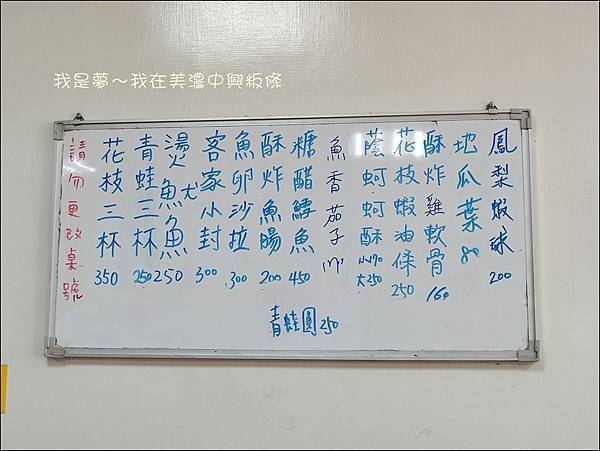 我是夢～我在美濃中興粄條
鳳梨蝦球 200
地瓜葉 80
酥炸雞軟骨 160
花枝蝦油條 250
蔭蚵蚵酥 小170 大250
魚香茄子
糖醋鱈魚 450
酥炸魚腸 200
魚卵沙拉 300
客家小封 300
燙魷魚 250
青蛙三杯 250
花枝三杯 350
請勿更改桌號
青蛙圓250